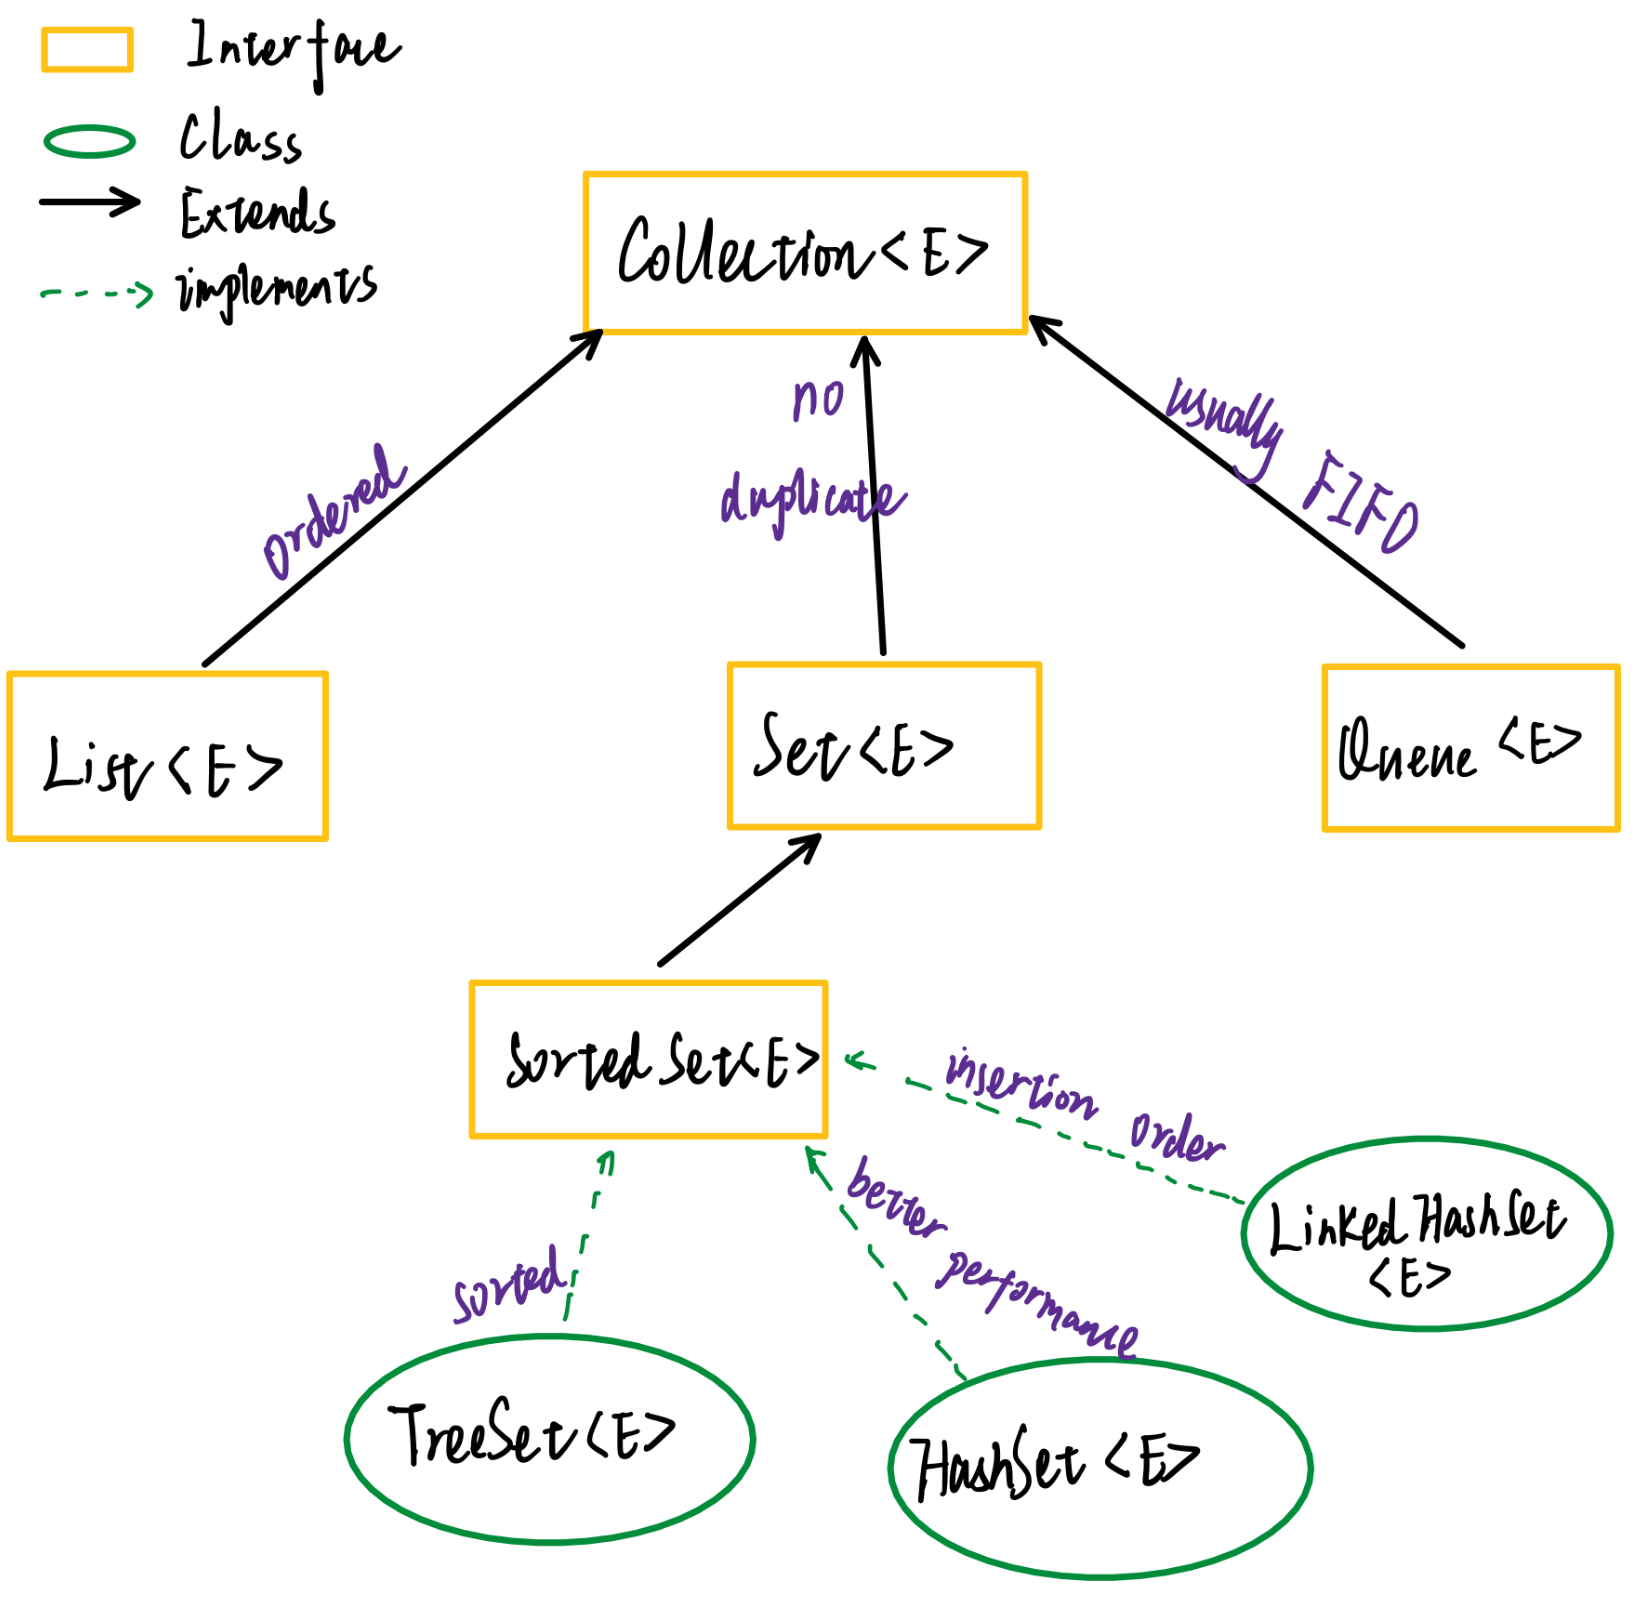 Interface
Class
Extends
implements
Collection<E>
no
duplicate
ordered
usually FIFO
List<E>
Set<E>
Queue <E>
Sorted Set<E>
insertion order
better
performance
sorted
LinkedHashSet
<E>
TreeSet<E>
HashSet <E>